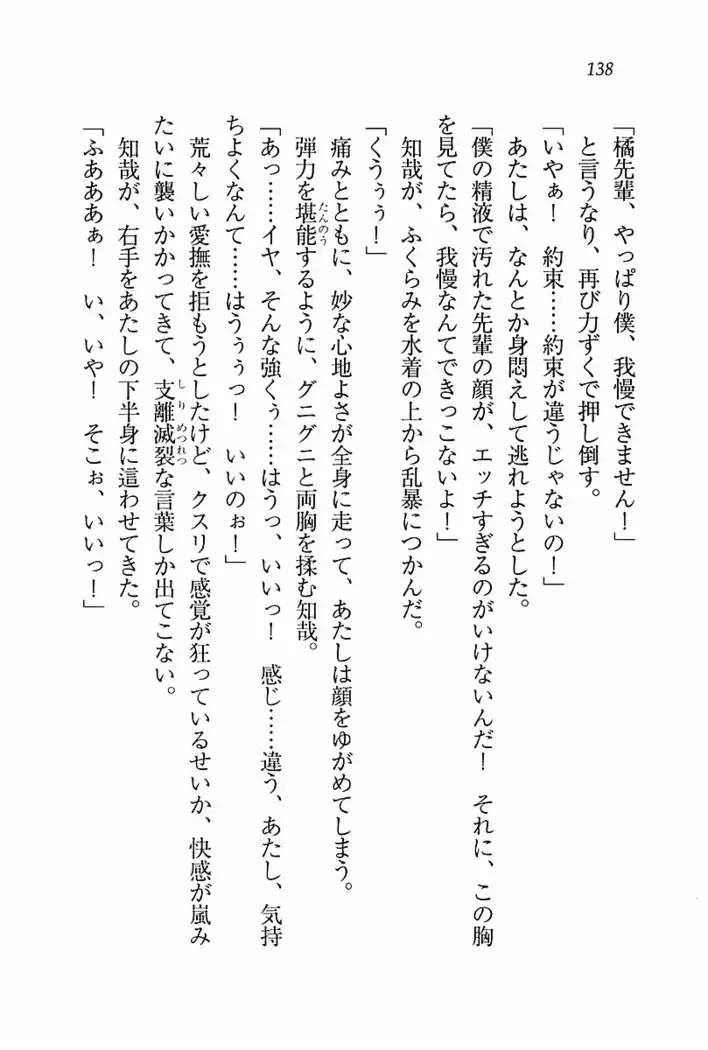 138
「橘先輩、やっぱり僕、我慢できません！」
と言うなり、再び力ずくで押し倒す。
「いやぁ！　約束……約束が違うじゃないの！」
あたしは、なんとか身悶えして逃れようとした。
「僕の精液で汚れた先輩の顔が、エッチすぎるのがいけないんだ！　それに、この胸
を見てたら、我慢なんてできっこないよ！」
知哉が、ふくらみを水着の上から乱暴につかんだ。
「くうぅぅ！」
痛みとともに、妙な心地よさが全身に走って、あたしは顔をゆがめてしまう。
弾力を堪能するように、グニグニと両胸を揉む知哉。
「あっ……イヤ、そんな強くぅ……はうっ、いいっ！　感じ……違う、あたし、気持
ちよくなんて……はうぅぅっ！　いいのぉ！」
荒々しい愛撫を拒もうとしたけど、クスリで感覚が狂っているせいか、快感が嵐み
たいに襲いかかってきて、支離滅裂な言葉しか出てこない。
知哉が、右手をあたしの下半身に這わせてきた。
「ふあああぁ！　い、いや！　そこぉ、いいっ！」